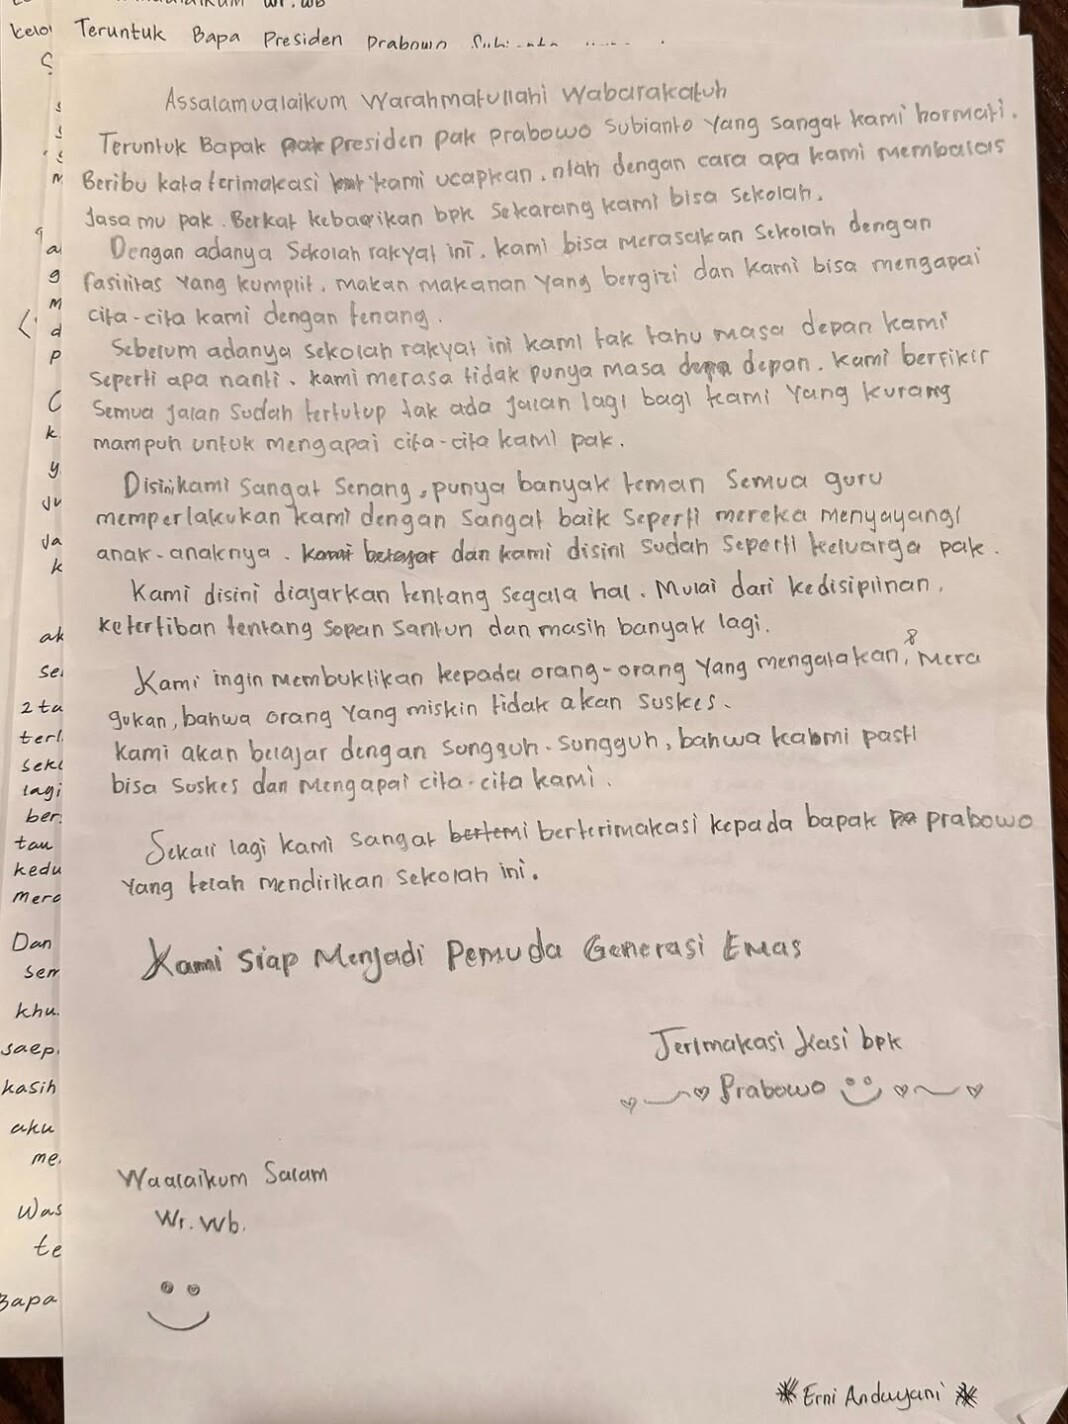 Teruntuk Bapa Presiden Prabowo
Assalamualaikum Warahmatullahi Wabarakatuh
Teruntuk Bapak presiden pak prabowo subianto yang sangat kami hormati.
Beribu kata terimakasi kami ucapkan. ntah dengan cara apa kami membalas
Jasa mu pak. Berkat kebaikan bpk sekarang kami bisa sekolah.
Dengan adanya sekolah rakyat ini. kami bisa merasakan sekolah dengan
fasilitas yang kumplit. makan makanan yang bergizi dan kami bisa mengapai
cita-cita kami dengan tenang.
Sebelum adanya sekolah rakyat ini kami tak tahu masa depan kami
seperti apa nanti. kami merasa tidak punya masa depan. kami berfikir
semua jalan sudah tertutup tak ada jalan lagi bagi kami yang kurang
mampuh untuk mengapai cita-cita kami pak.
Disini kami sangat senang, punya banyak teman semua guru
memperlakukan kami dengan sangat baik seperti mereka menyayangi
anak-anaknya. dan kami disini sudah seperti keluarga pak.
Kami disini diajarkan tentang segala hal. Mulai dari kedisiplinan,
ketertiban tentang sopan santun dan masih banyak lagi.
Kami ingin membuktikan kepada orang-orang yang mengatakan, & mera
gukan, bahwa orang yang miskin tidak akan suskes.
kami akan belajar dengan sungguh-sungguh, bahwa kami pasti
bisa suskes dan mengapai cita-cita kami.
Sekali lagi kami sangat berterimakasi kepada bapak prabowo
yang telah mendirikan sekolah ini.
Kami siap Menjadi Pemuda Generasi Emas
Terimakasi kasi bpk
Prabowo
Waalaikum Salam
Wr. Wb.
Erni Andayani